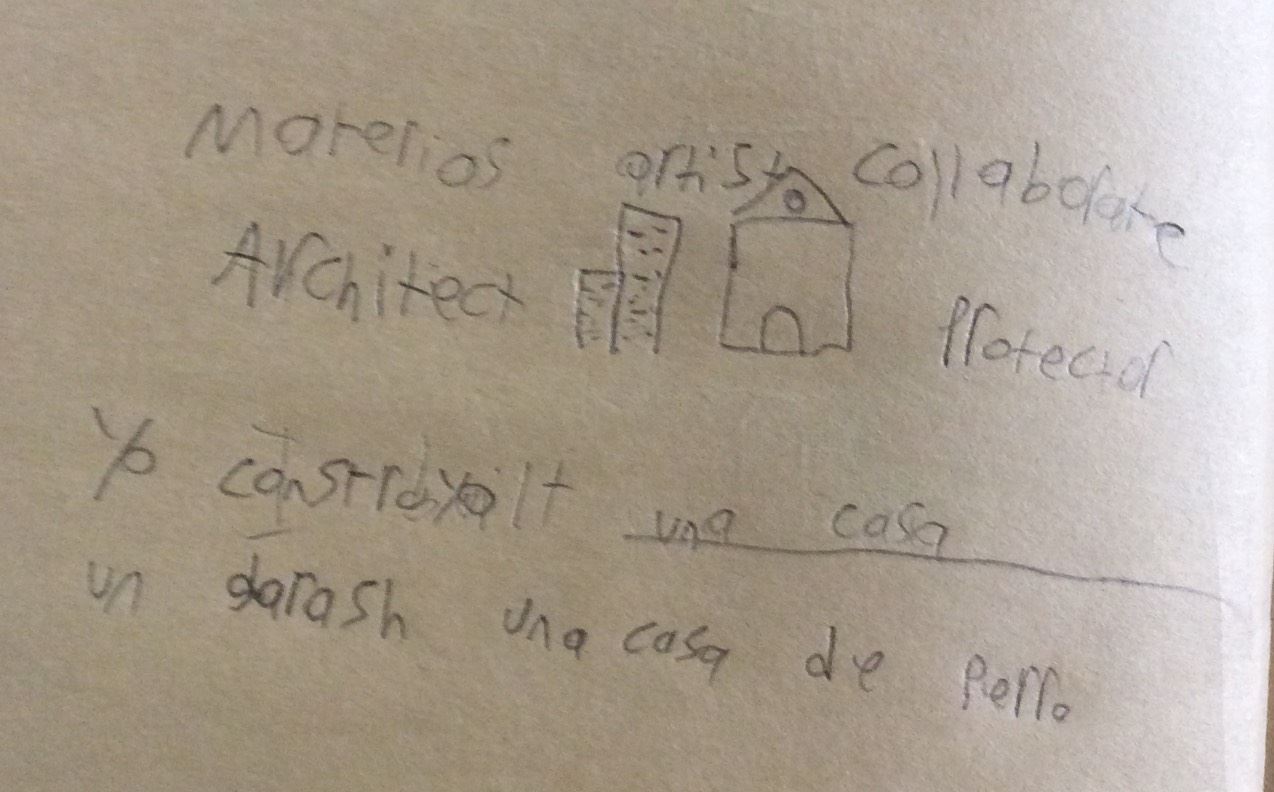 Morerios artist collaborate
Architect Protector
Yo una casa
un garash una casa de perro